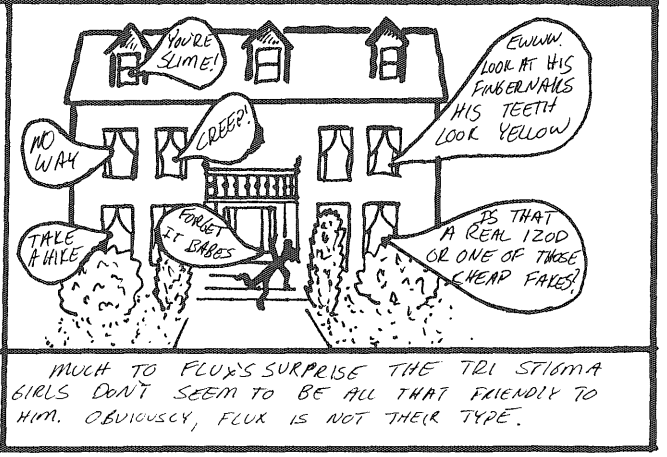 YOU'RE
SLIME!
EWWW.
LOOK AT HIS
FINGERNAILS
HIS TEETH
LOOK YELLOW
NO
WAY
CREEP!
TAKE
A HIKE
FORGET
IT BABES
IS THAT
A REAL IZOD
OR ONE OF THOSE
CHEAP FAKES?
MUCH TO FLUX'S SURPRISE THE TRI STIGMA
GIRLS DON'T SEEM TO BE ALL THAT FRIENDLY TO
HIM. OBVIOUSLY, FLUX IS NOT THEIR TYPE.